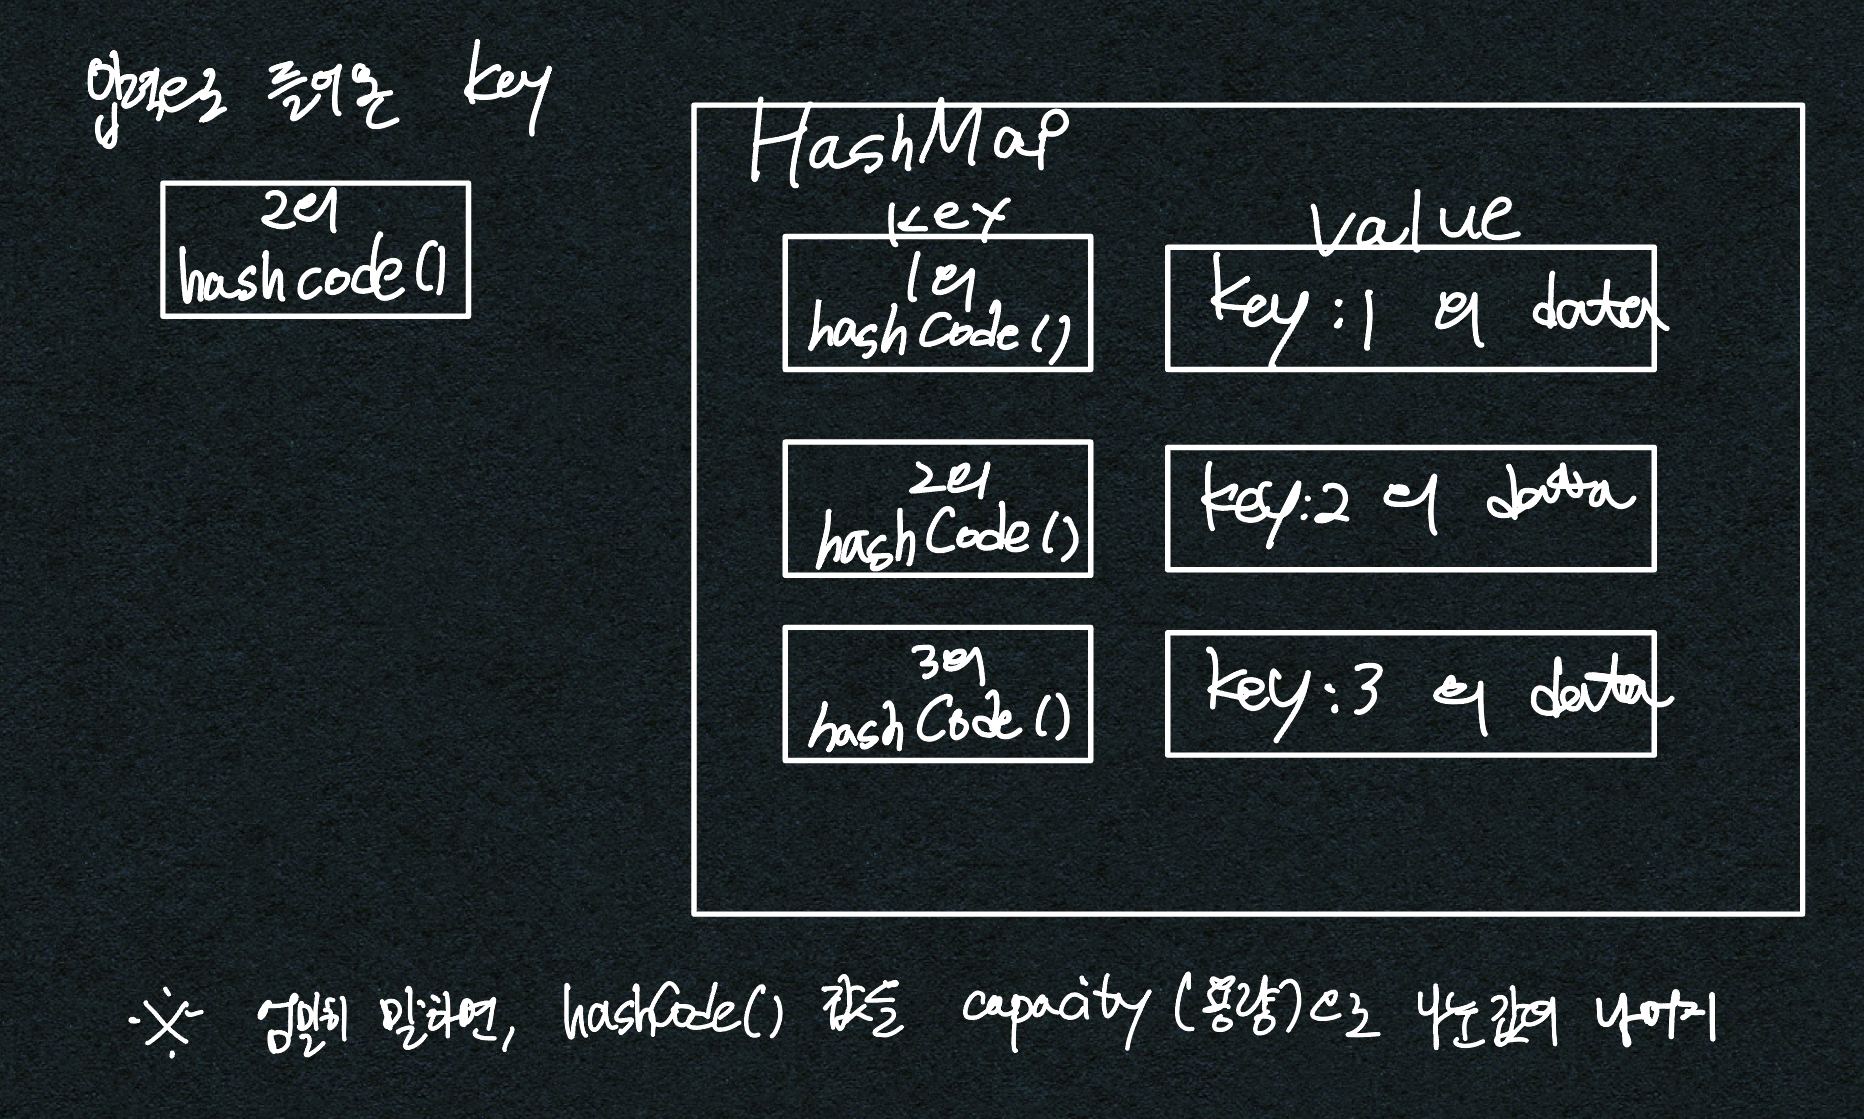 입력으로 들어온 key
2의
hashcode()
HashMap
key
value
1의
hashCode()
key:1 의 data
2의
hashCode()
key:2 의 data
3의
hashCode()
key:3 의 data
※ 엄밀히 말하면, hashCode() 값을 capacity (용량)으로 나눈값의 나머지